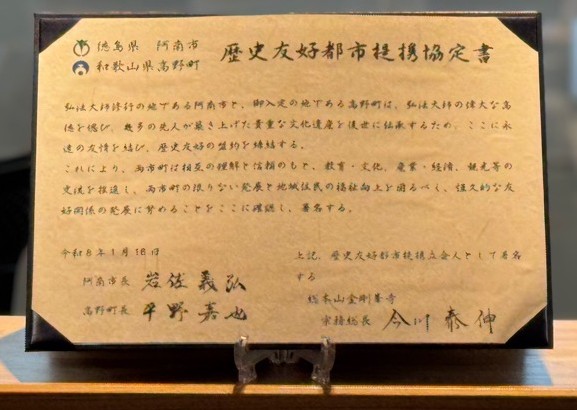 徳島県 阿南市
和歌山県高野町
歴史友好都市提携協定書
弘法大師修行の地である阿南市と、御入定の地である高野町は、弘法大師の偉大な高
徳を偲び、幾多の先人が築き上げた貴重な文化遺産を後世に伝承するため、ここに永
遠の友情を結び、歴史友好の盟約を締結する。
これにより、両市町は相互の理解と信頼のもと、教育・文化、産業・経済、観光等の
交流を推進し、両市町の限りない発展と地域住民の福祉向上を図るべく、恒久的な友
好関係の発展に努めることをここに確認し、署名する。
令和8年1月16日
阿南市長 岩佐義弘
高野町長 平野嘉也
上記、歴史友好都市提携立会人として署名
する
総本山金剛峯寺
宗務総長 今川泰伸